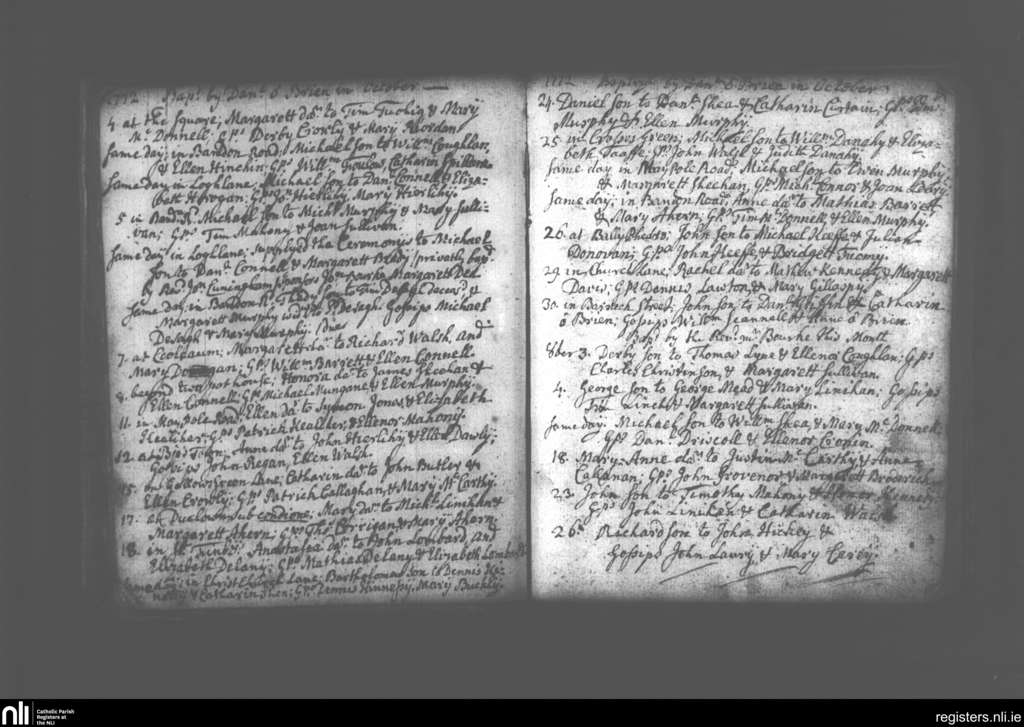 1772 Bap.s by Dan.l ô Brien in October
4 at the Square; Margarett da.r to Tim Tuohig & Mary
M.c Donnell. Gp.s Derby Crowly & Mary Riordan
same day; in Bandon Road; Michael son to Will.m Coughlan,
& Ellen Hinchin; Gp.s Will.m Catharin
same day in Loghlane; Michael son to Dan.l Connell & Eliza-
beth Horgan; Gp.s Jo.n Hickey Mary Hierlihy.
5 in Band.n R. Michael Son to Mich.l Murphy & Mary Sulli-
van; Gp.s Tim Mahony & Joan Sullivan.
same day in Loghlane; supplyed the Ceremonys to Michael
son to Dan.l Connell & Margarett privatly bap.d
by Rev.d Cuningham; sponsors Margarett
same day; in Bandon R. son to Tim Desagh deceas.d &
Margarett Murphy to Desagh. Gossips Michael
Desagh & Mary Murphy.
7. at Coolfaun; Margarett da.r to Richard Walsh, and
Mary Gp.s Will.m Barrett & Ellen Connell.
8. beyond house; Honora da.r to James Sheehan &
Ellen Connell; Gp.s Michael Mungane & Ellen Murphy.
11. in May pole Road; Ellen da.r to Symeon Jones & Elizabeth
Heatcher; Gp.s Patrick Heatcher, & Ellenor Mahony.
12. at Anne da.r to John Hierlihy & Ellen Dawly;
Gossips John Regan, Ellen Walsh.
15. in Gallows Green Lane; Catharin da.r to John Butler &
Ellen Crowly; Gp.s Patrick Callaghan, & Mary M.c Carthy.
17. at Duclown sub conditione, Mary da.r to Mich.l Linnehan &
Margarett Ahern; Gp.s Tho.s Corrigan, & Mary Ahern.
18. in Anastatia da.r to John Lombard, and
Elizabeth Delany; Gp.s Mathias Delany & Elizabeth Lombard
same day; in Christ Church Lane; Bartholomew son to Dennis Ke-
& Catharin Shea; Gp.s Dennis Hennessy, Mary Buckly.
1772 Baptism.s by Dan.l ô Brien in October
24. Daniel Son to Dan.l Shea & Catharin Curtain; Gp.s
Murphy & Ellen Murphy.
25 in Crosses Green; Michael Son to Will.m Danahy & Eliza-
beth Taaffe. Gp.s John Walsh & Judith Danahy
same day in Maypole Road, Michael son to Owen Murphy
& Margarett Sheehan, Gp.s Mich.l Connor & Joan Leary
same day; in Bandon Road, Anne da.r to Mathias Barrett
& Mary Ahern; Gp.s Tim M.c Donnell, & Ellen Murphy.
26. at Ballyphehan; John son to Michael Keeffe & Julian
Donovan; Gp.s John Keeffe, & Bridgett Twomy.
29 in Church Lane; Rachel da.r to Mathew Kennedy & Margarett
Davis; Gp.s Dennis Lawton, & Mary Gillaspy.
30. in Barrack Street; John Son to Dan.l Griffin & Catharin
ô Brien; Gossips Will.m & Anne ô Brien.
Bap.s by the Rev.d m.r Bourke this Month
8ber 3. Derby Son to Thomas Lyne & Ellenor Coughlan; Gp.s
Charles Christinson, & Margarett Sullivan.
4. George Son to George Mead & Mary Linehan; Gossips
Linch & Margarett Sullivan.
same day. Michael Son to Will.m Shea, & Mary M.c Donnell.
Gp.s Dan.l Driscoll & Ellenor Cronin.
18. Mary-Anne da.r to Justin M.c Carthy & Anne
Callanan; Gp.s John Grovenor & Margarett Broderick
23. John Son to Timothy Mahony &
Gp.s John Linehan & Catharin Walsh
26.th Richard Son to John Hickey &
Gossips John Laury & Mary
nli
Catholic Parish
Registers at
the NLI
registers.nli.ie